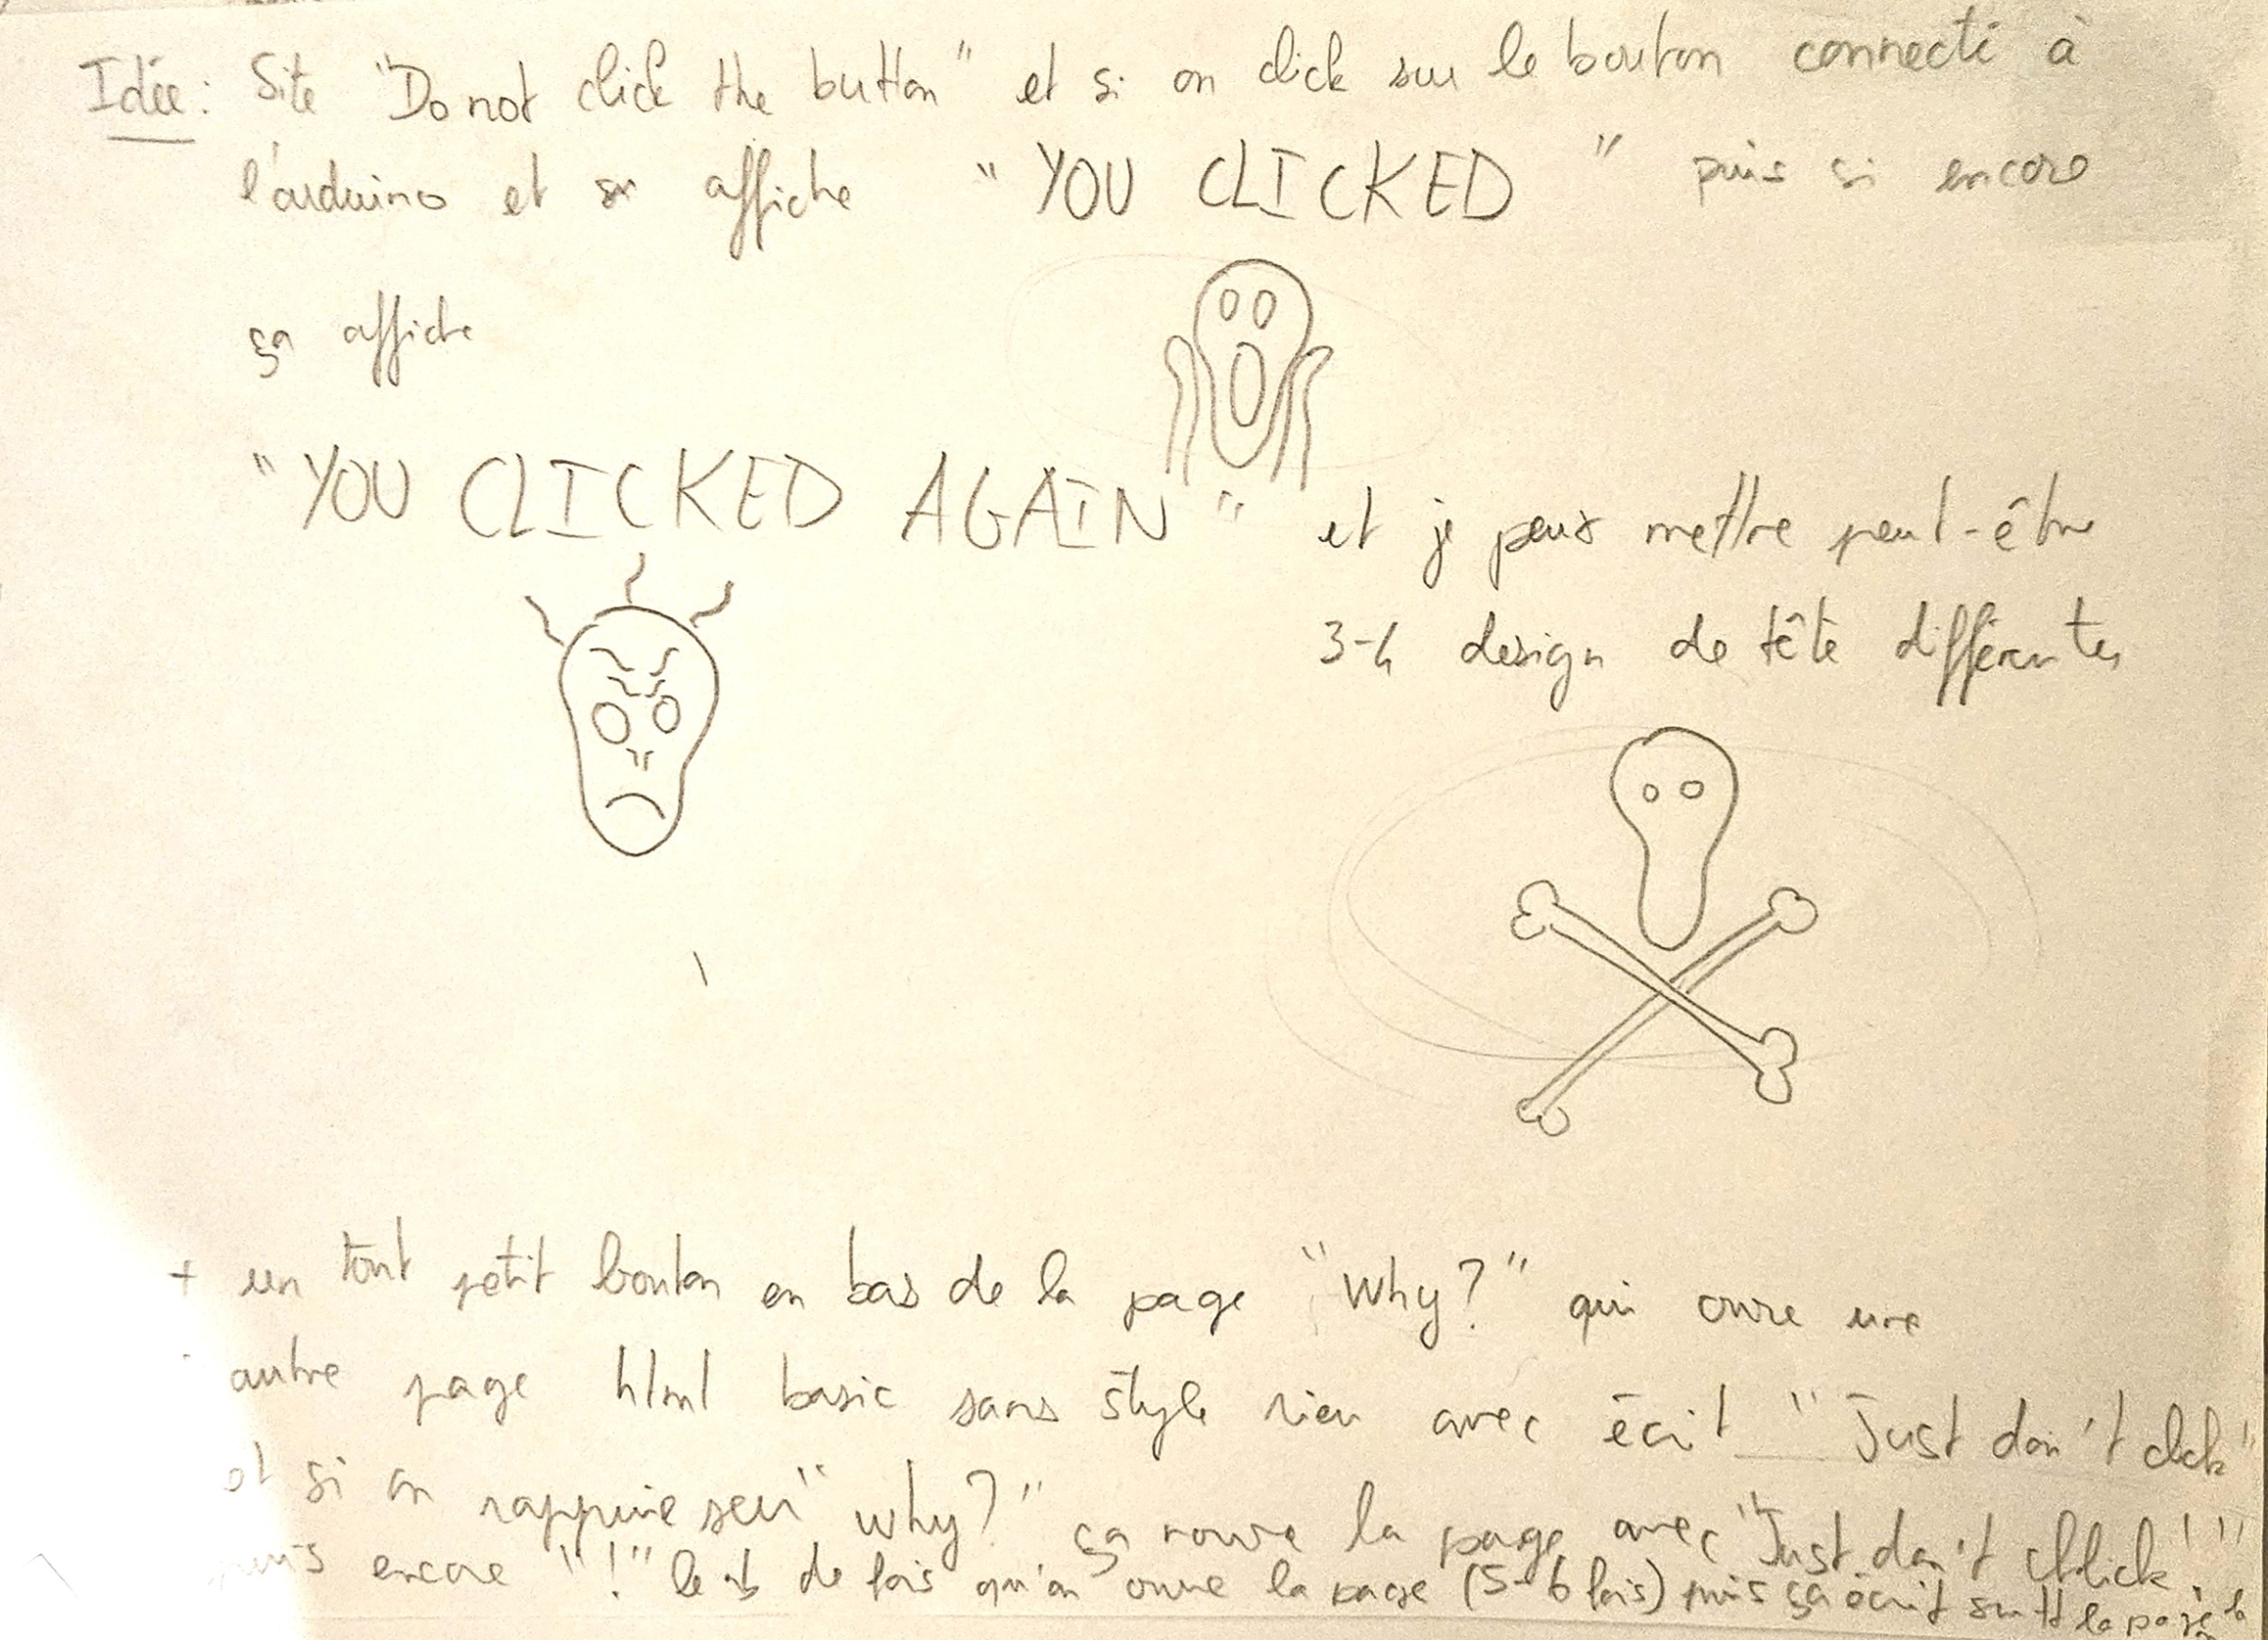 Idée: Site "Do not click the button" et si on click sur le bouton connecté à
l'arduino et affiche "YOU CLICKED" puis si encore
ça affiche
"YOU CLICKED AGAIN" et je peux mettre peut-être
3-4 design de tête différentes
+ un tout petit bouton en bas de la page "Why?" qui ouvre une
autre page html basic sans style rien avec écrit "Just don't click"
et si on rappuie sur "why?" ça rouvre la page avec "Just don't cllick!!!"
puis encore "!" le nb de fois qu'on ouvre la page (5-6 fois) puis ça écrit sur tt la page